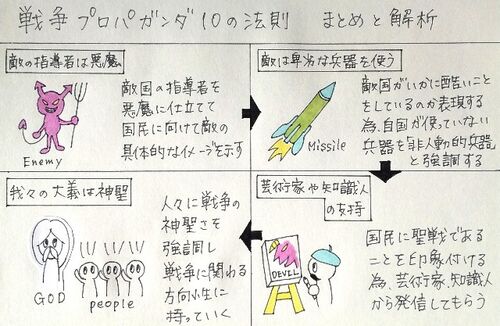 戦争プロパガンダ10の法則 まとめと解析
敵の指導者は悪魔
敵国の指導者を
悪魔に仕立てて
国民に向けて敵の
具体的なイメージを示す
Enemy
敵は卑劣な兵器を使う
敵国がいかに酷いこと
をしているのか表現する
為、自国が使っていない
兵器を「非人動的兵器」
と強調する
Missile
芸術家や知識人
の支持
国民に聖戦である
ことを印象付ける
為、芸術家、知識人
から発信してもらう
DEVIL
我々の大義は神聖
人々に戦争の
神聖さを
強調し
戦争に関わる
方向性に
持っていく
GOD
people